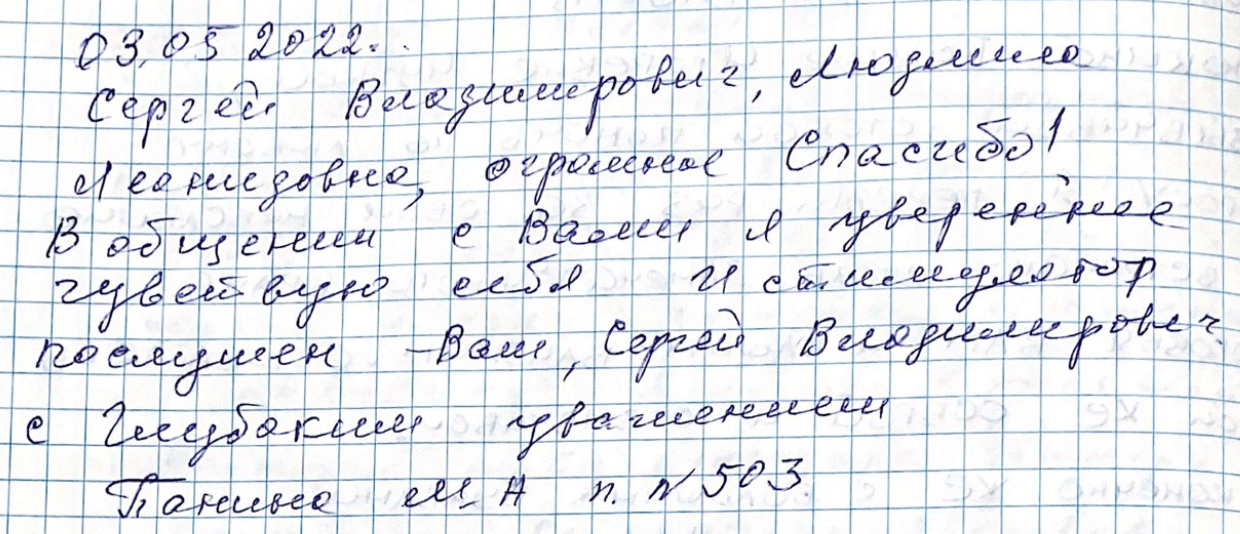 03.05 2022г.
Сергей Владимирович, Людмила
Леонидовна, огромное Спасибо!
В общении с Вами я увереннее
чувствую себя и стимулятор
послушен - Вам, Сергей Владимирович
с Глубоким уважением
Панина М.А п. N 503